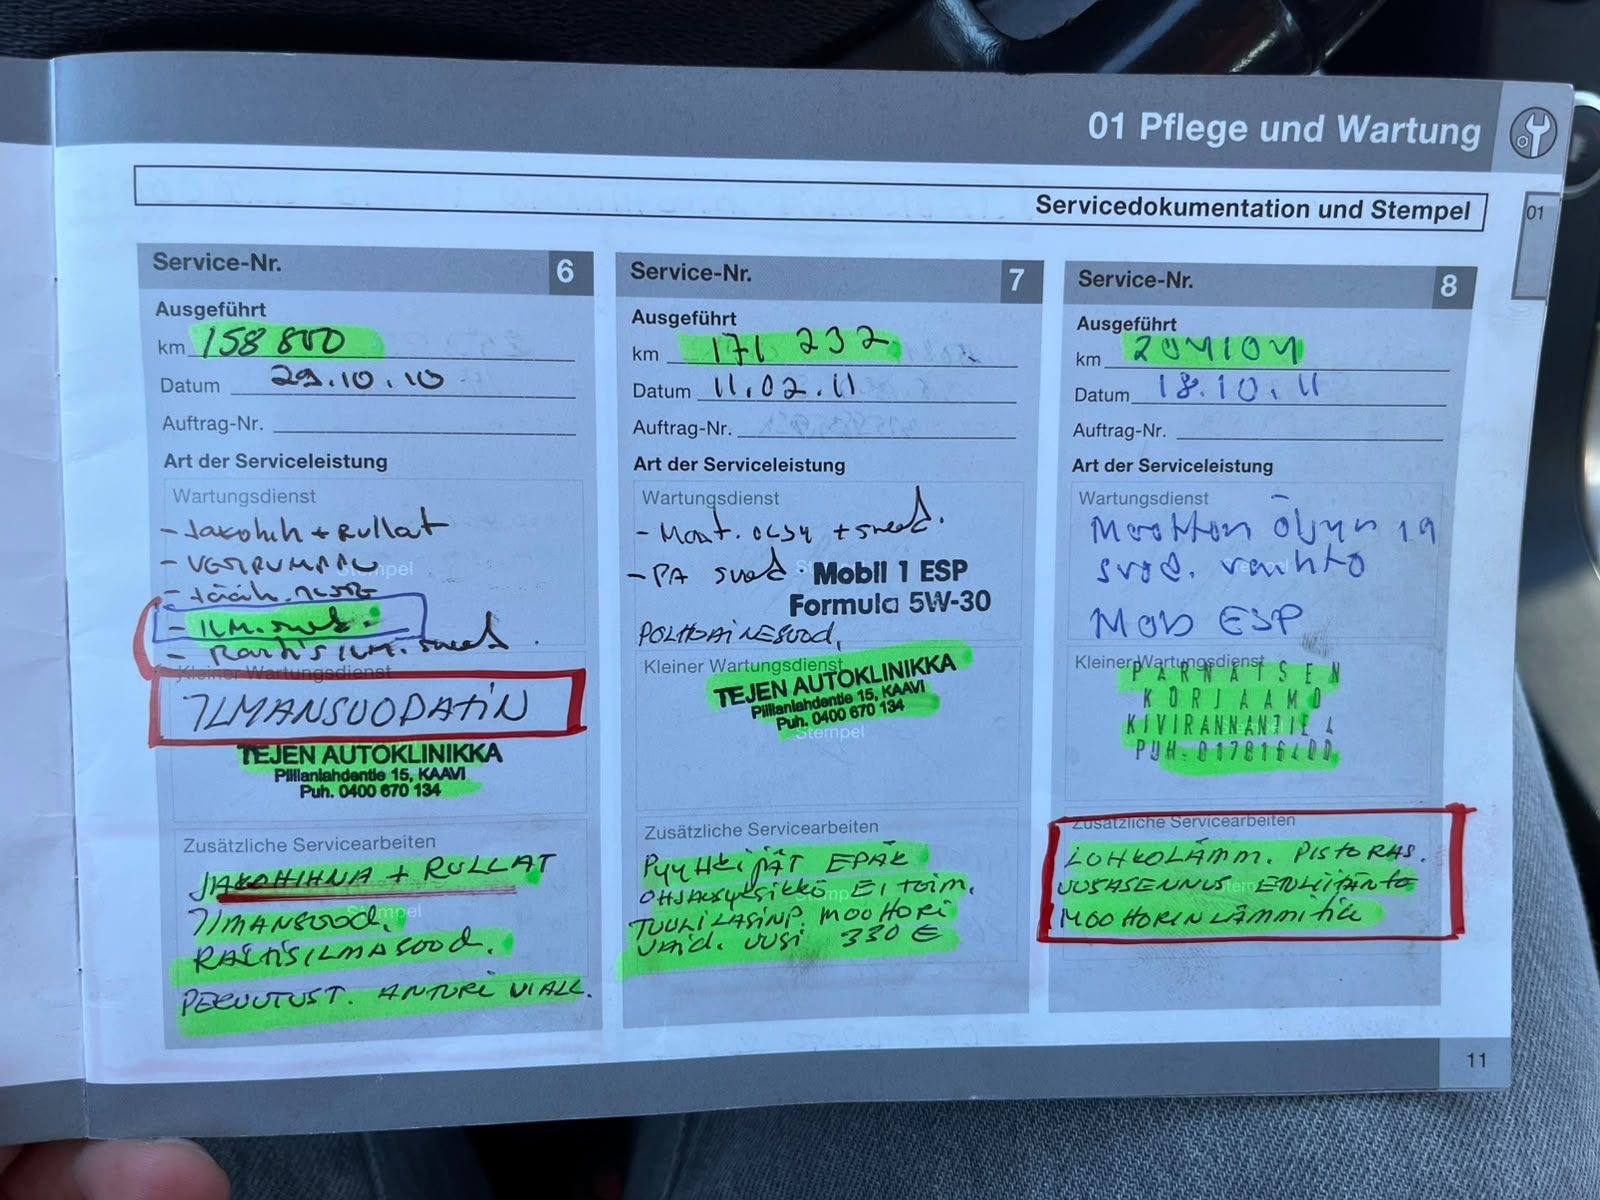 01 Pflege und Wartung
Servicedokumentation und Stempel
01
Service-Nr. 6
Ausgeführt
km 158 800
Datum 29.10.10
Auftrag-Nr.
Art der Serviceleistung
Wartungsdienst
- Jakohih + Rullat
- VESIPUMPPU
- Jääh.
- ILM. suod.
- Raitis ILM. suod.
Kleiner Wartungsdienst
ILMANSUODATIN
TEJEN AUTOKLINIKKA
Piilianlahdentie 15, KAAVI
Puh. 0400 670 134
Zusätzliche Servicearbeiten
JAKOHIHNA + RULLAT
ILMANSUOD.
RAITISILMASUOD.
PERUUTUST. ANTURI VIALL.
Service-Nr. 7
Ausgeführt
km 171 232
Datum 11.02.11
Auftrag-Nr.
Art der Serviceleistung
Wartungsdienst
- Moot. ÖLJY + suod.
- PA suod.
Mobil 1 ESP
Formula 5W-30
POLTTOAINESUOD.
Kleiner Wartungsdienst
TEJEN AUTOKLINIKKA
Piilianlahdentie 15, KAAVI
Puh. 0400 670 134
Stempel
Zusätzliche Servicearbeiten
PYYHKIJÄT EPÄK
OHJAUSYKSIKKÖ EI TOIM.
TUULILASINP. MOOTTORI
VAIHD. UUSI 330 €
Service-Nr. 8
Ausgeführt
km 204104
Datum 18.10.11
Auftrag-Nr.
Art der Serviceleistung
Wartungsdienst
Moottori Öljyn ja
suod. vaihto
Mob ESP
Kleiner Wartungsdienst
PARNAISEN
KORJAAMO
KIVIRANNANTIE 4
PUH. 017816400
Zusätzliche Servicearbeiten
LOHKOLÄMM. PISTORAS.
UUSASENNUS
MOOTTORIN LÄMMITIN
11